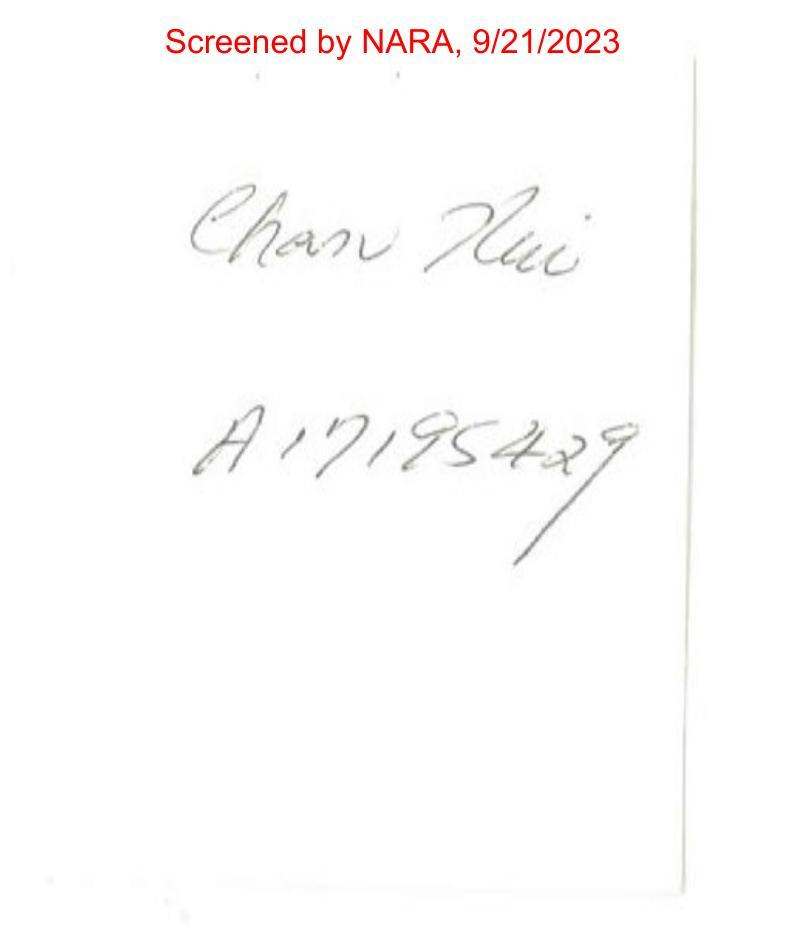 Screened by NARA, 9/21/2023
Chan
A17195429